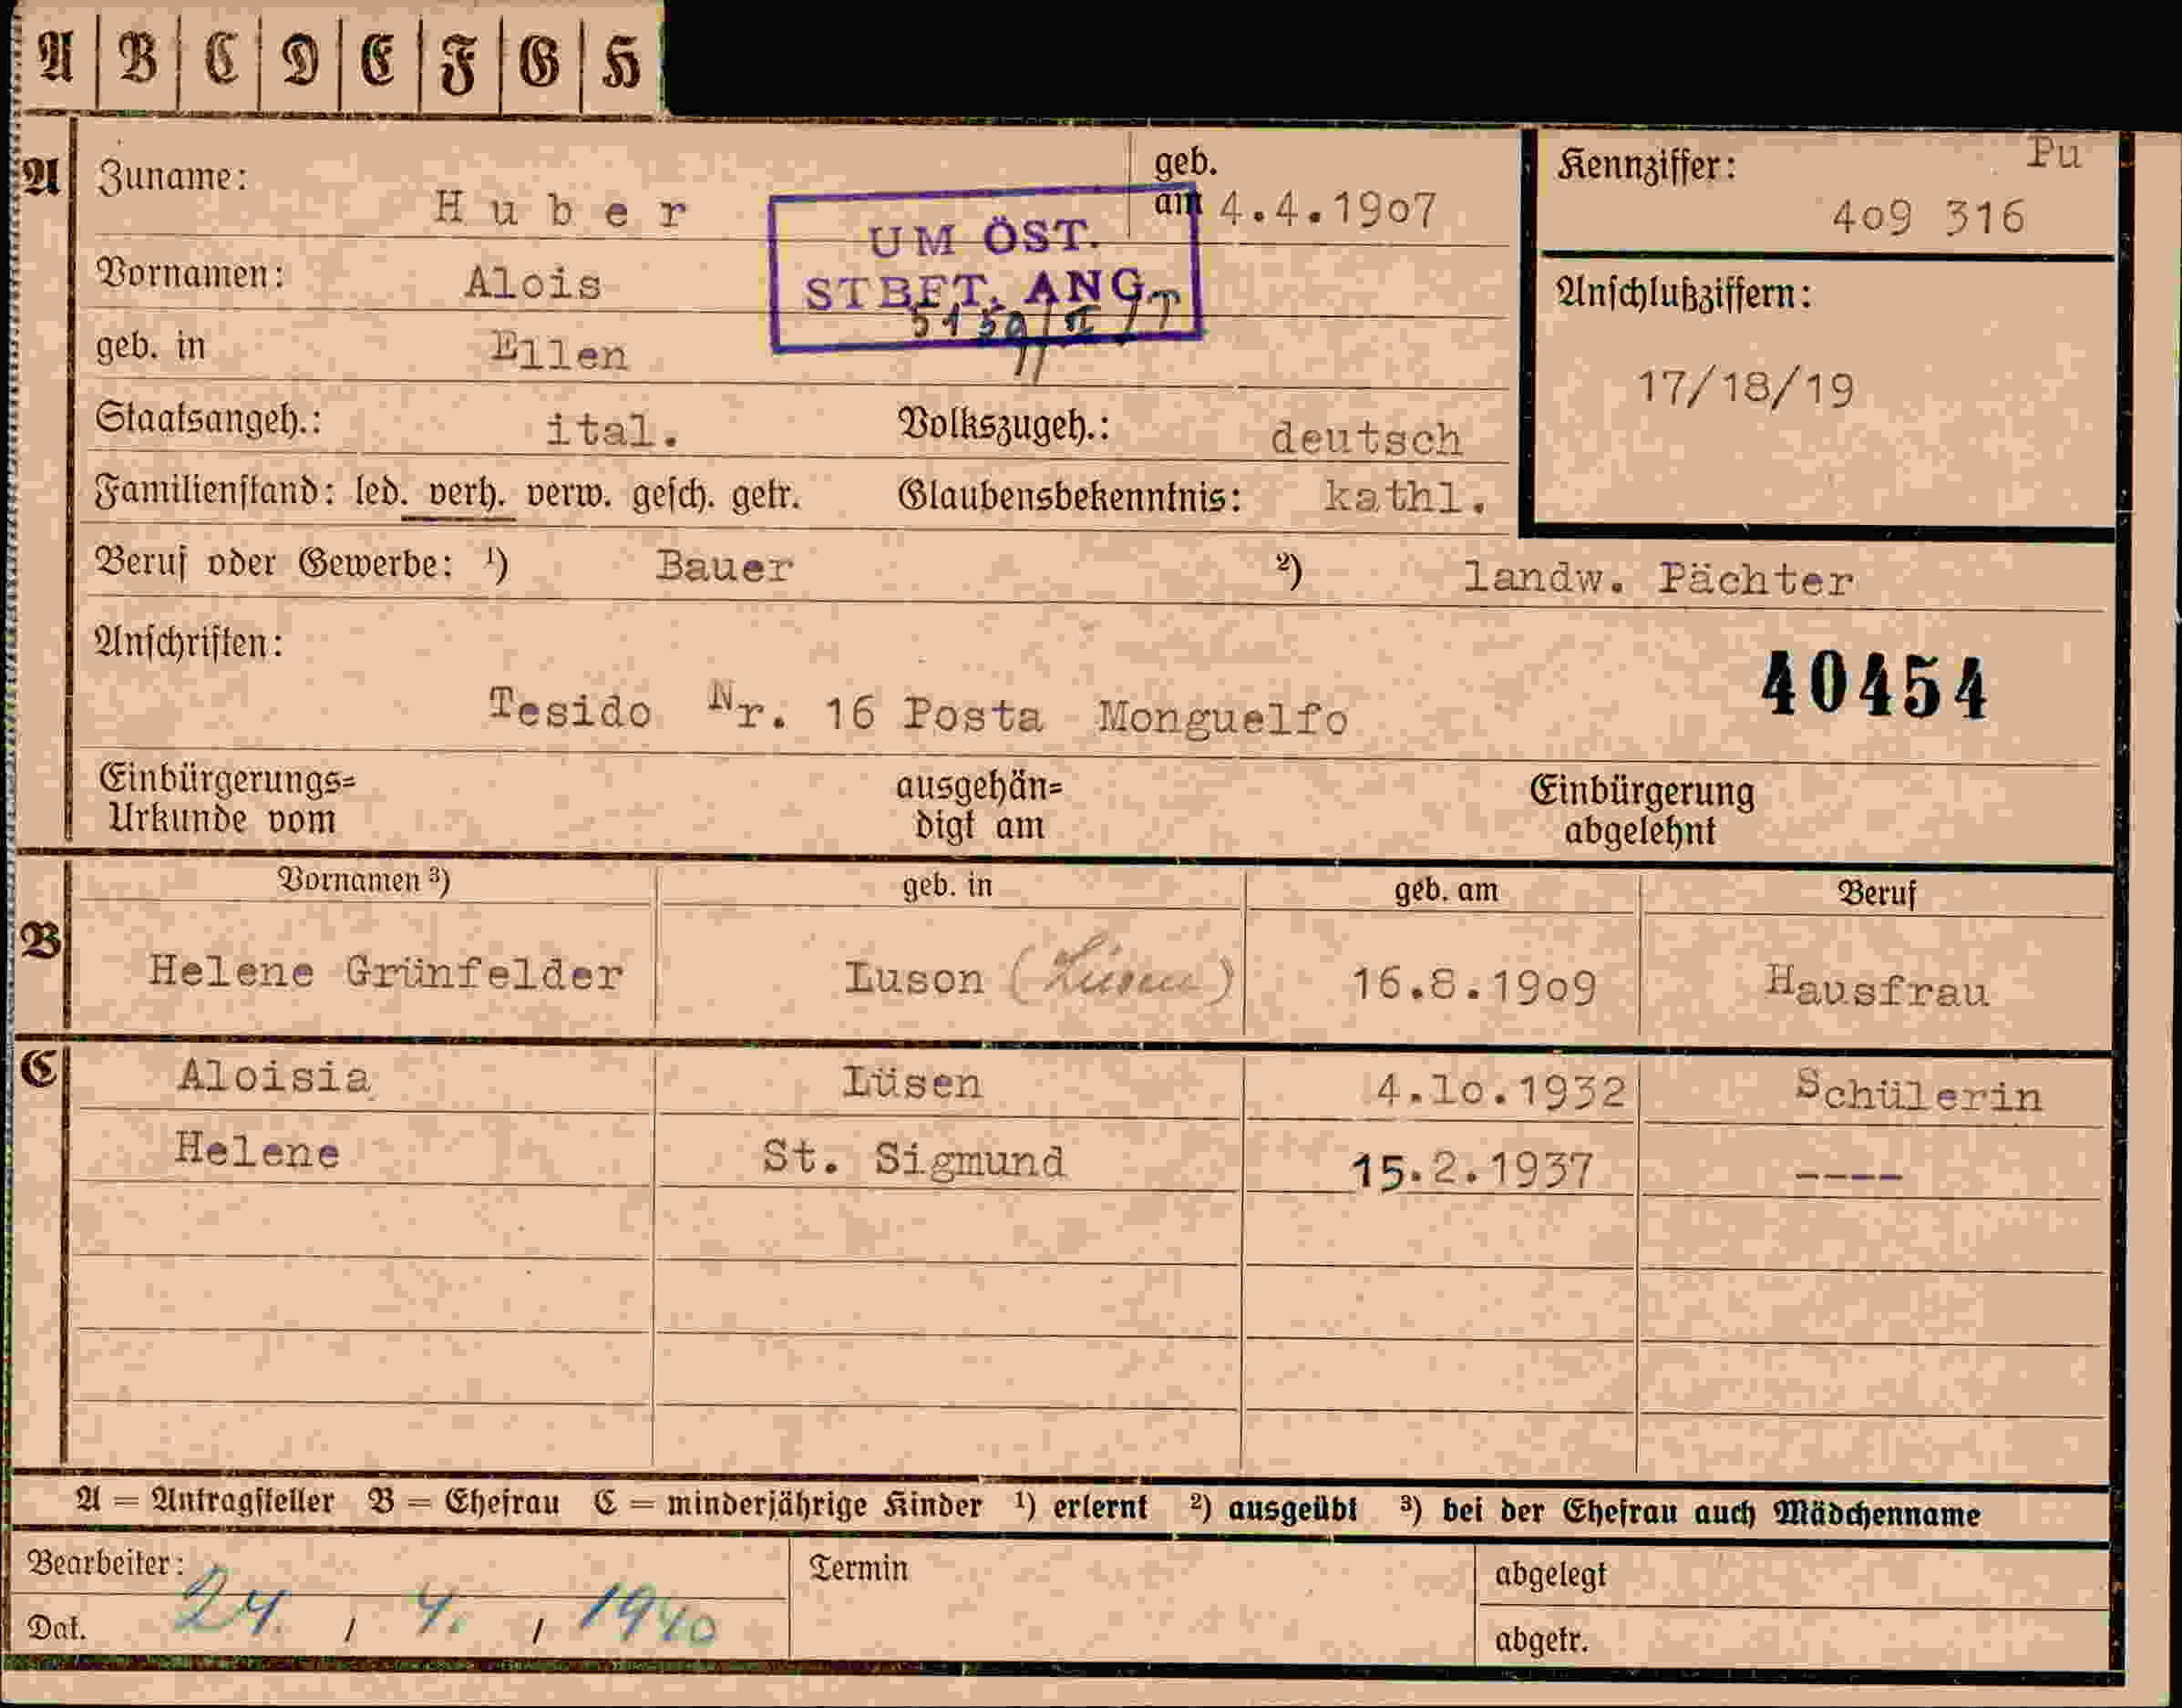 A B C D E F G H
A Zuname: Huber geb. am 4.4.1907 Kennziffer: Pu 409 316
UM ÖST.
STBFT. ANG.
Vornamen: Alois
geb. in Ellen
Anschlußziffern:
17/18/19
Staatsangeh.: ital. Volkszugeh.: deutsch
Familienstand: led. verh. verw. gesch. getr. Glaubensbekenntnis: kathl.
Beruf oder Gewerbe: ¹) Bauer ²) landw. Pächter
Anschriften:
40454
Tesido Nr. 16 Posta Monguelfo
Einbürgerungs= ausgehän= Einbürgerung
Urkunde vom digt am abgelehnt
Vornamen ³) geb. in geb. am Beruf
B Helene Grünfelder Luson (Lüsen) 16.8.1909 Hausfrau
C Aloisia Lüsen 4.10.1932 Schülerin
Helene St. Sigmund 15.2.1937 ----
A = Antragsteller B = Ehefrau C = minderjährige Kinder ¹) erlernt ²) ausgeübt ³) bei der Ehefrau auch Mädchenname
Bearbeiter: Termin abgelegt
Dat. 24. / 4. / 1940 abgetr.